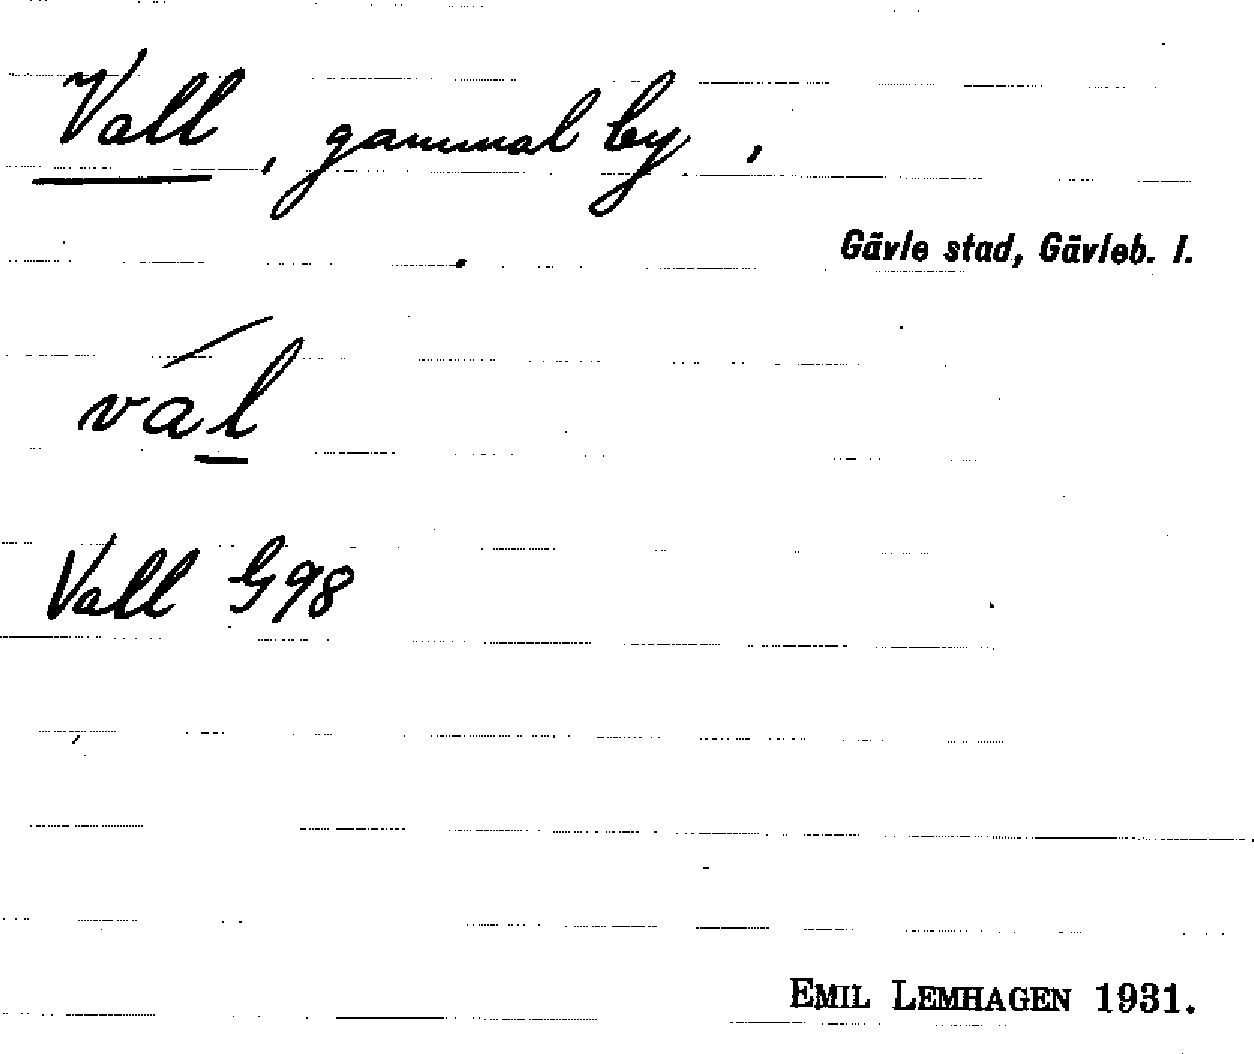 Vall, gammal by,
Gävle stad, Gävleb. l.
vál
Vall G98
EMIL LEMHAGEN 1931.